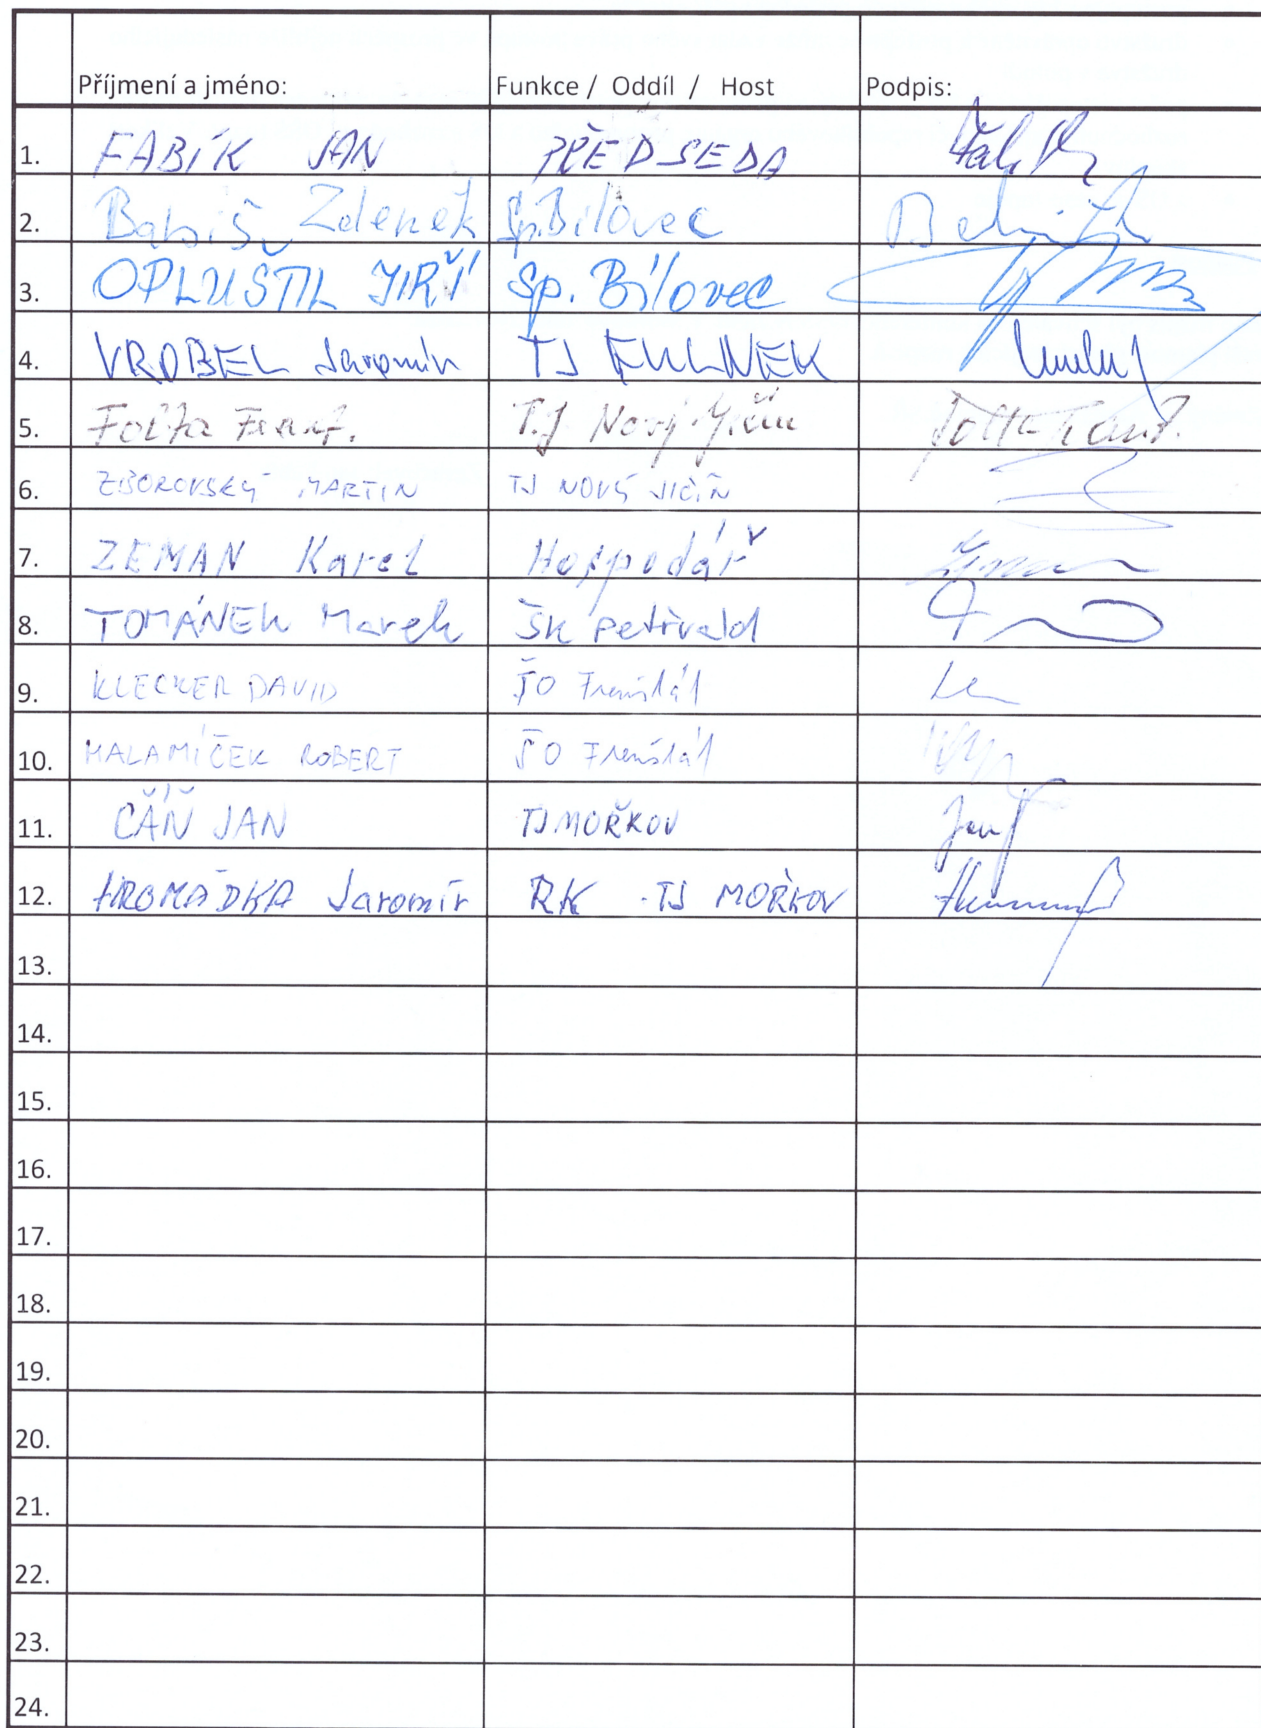 Příjmení a jméno: Funkce / Oddíl / Host Podpis:
1. FABÍK JAN PŘEDSEDA
2. Babiš Zdeněk Sp. Bílovec
3. OPLUŠTIL JIŘÍ Sp. Bílovec
4. VROBEL Jaromír TJ FULNEK
5. Folta Frant. T.J Nový Jičín Folta Frant.
6. ZBOROVSKÝ MARTIN TJ NOVÝ JIČÍN
7. ZEMAN Karel Hospodář
8. TOMÁNEK Marek ŠK Petřvald
9. KLECKER DAVID ŠO Frenštát
10. MALAMÍČEK ROBERT ŠO Frenštát
11. ČÁŇ JAN TJ MOŘKOV
12. HROMÁDKA Jaromír RK - TJ MOŘKOV
13.
14.
15.
16.
17.
18.
19.
20.
21.
22.
23.
24.